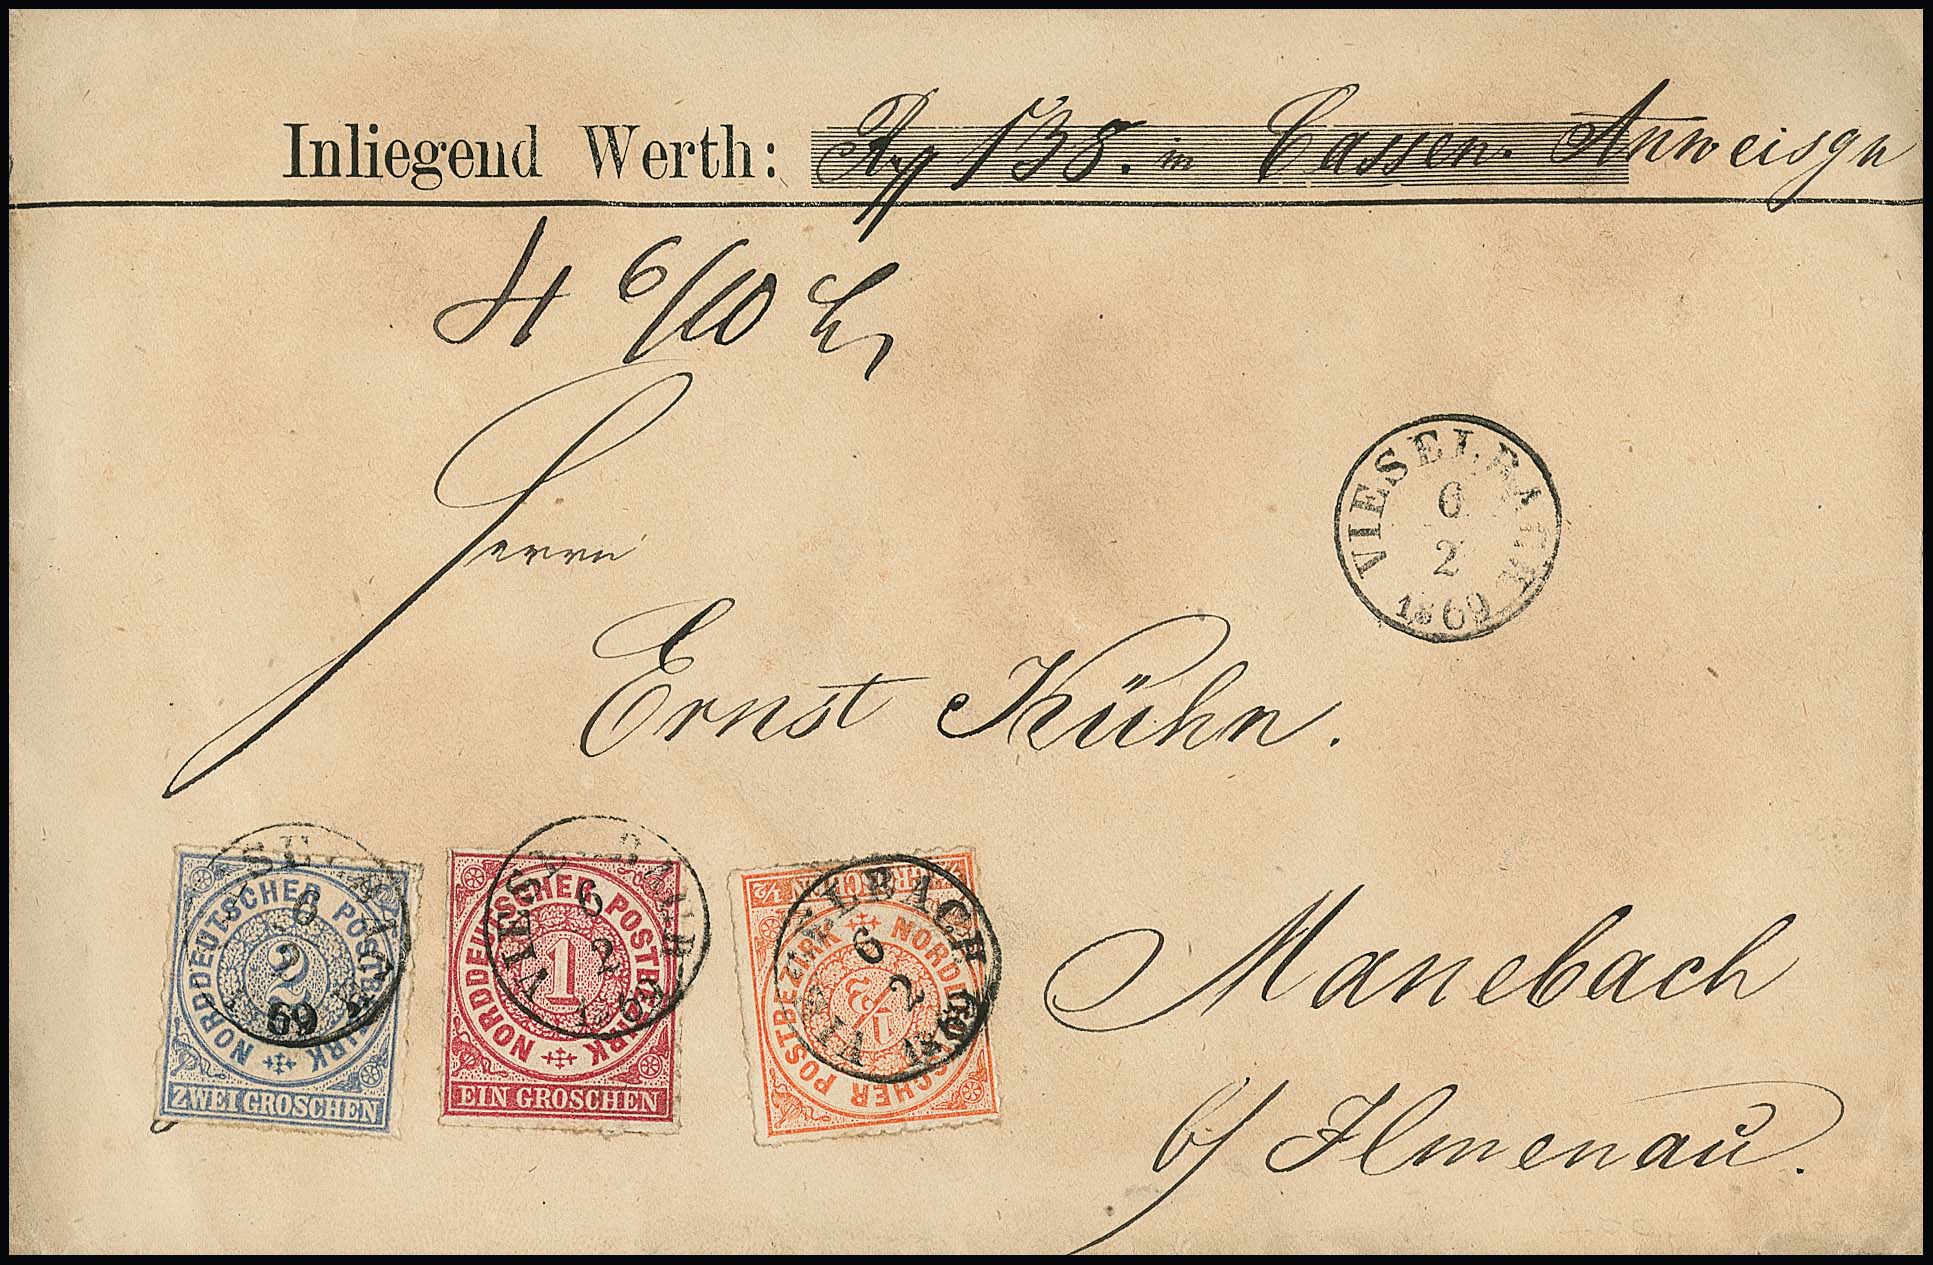 Inliegend Werth: 138. in Cassen. Anweisgn
4 6/10 Lt
Herrn
VIESELBACH
6
2
1869
Ernst Kühn.
NORDDEUTSCHER POSTBEZIRK
2
ZWEI GROSCHEN
6
69
NORDDEUTSCHER POSTBEZIRK
1
EIN GROSCHEN
VIESELBACH
6
2
NORDDEUTSCHER POSTBEZIRK
1/2
VIESELBACH
6
2
Manebach
b/ Ilmenau.